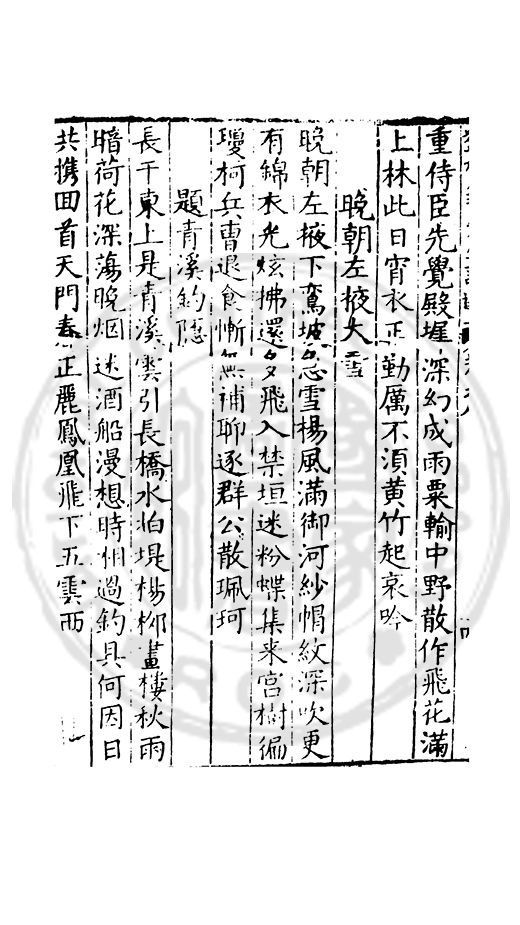 重侍臣先覺殿墀深幻成雨粟輸中野散作飛花滿
上林此日宵衣正勤厲不須黃竹起哀吟
晚朝左掖大雪
晚朝左掖下鸞坡忽雪楊風滿御河紗帽紋深吹更
有錦衣光炫拂還多飛入禁垣迷粉蝶集来宮樹偏
瓊柯兵曹退食慚無補聊逐群公散珮珂
題青溪釣隱
長干東上是青溪雲引長橋水怕堤楊柳畫樓秋雨
暗荷花深蕩晚烟迷酒船漫想時相過釣具何因日
共携回首天門春正麗鳳凰飛下五雲西